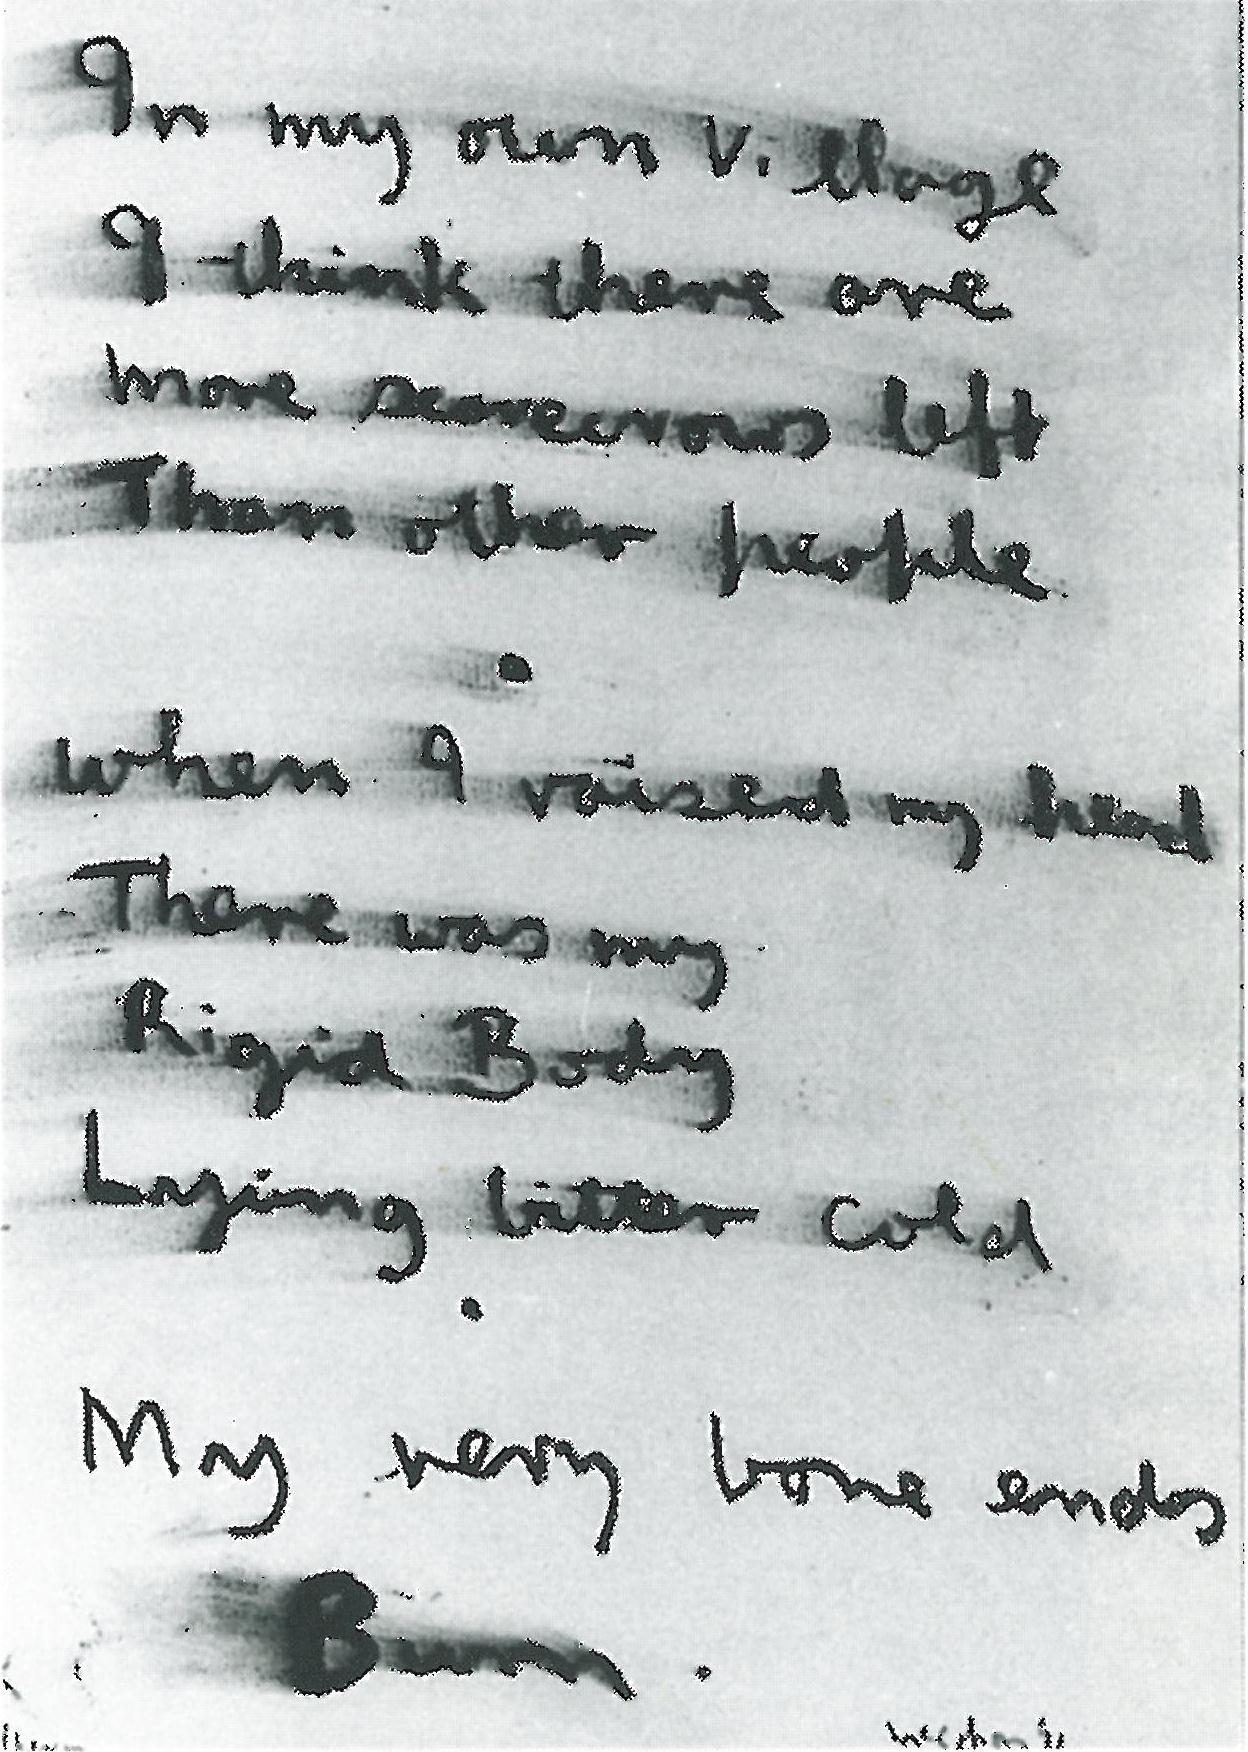 In my own Village
I think there are
more scarecrows left
Than other people
.
when I raised my head
There was my
Rigid Body
Lying bitter cold
.
My very bone ends
Burn .